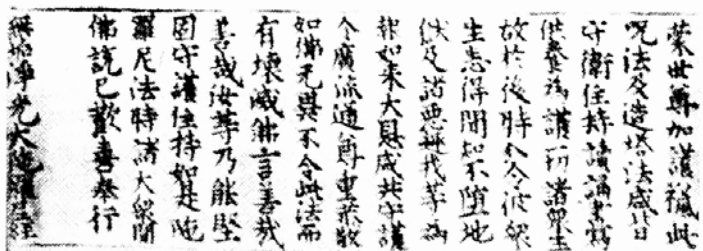 蒙世尊加護獲此
呪法及造塔法咸皆
守衛住持讀誦書寫
供養為護一切諸眾生
故於後時令彼眾
生悉得聞知不墮地
獄及諸惡趣我等為
報如來大恩咸共守護
令廣流通尊重恭敬
如佛无異不令此法而
有壞滅佛言善哉
善哉汝等乃能堅
固守護住持如是陀
羅尼法時諸大眾聞
佛說已歡喜奉行
無垢淨光大陀羅尼經